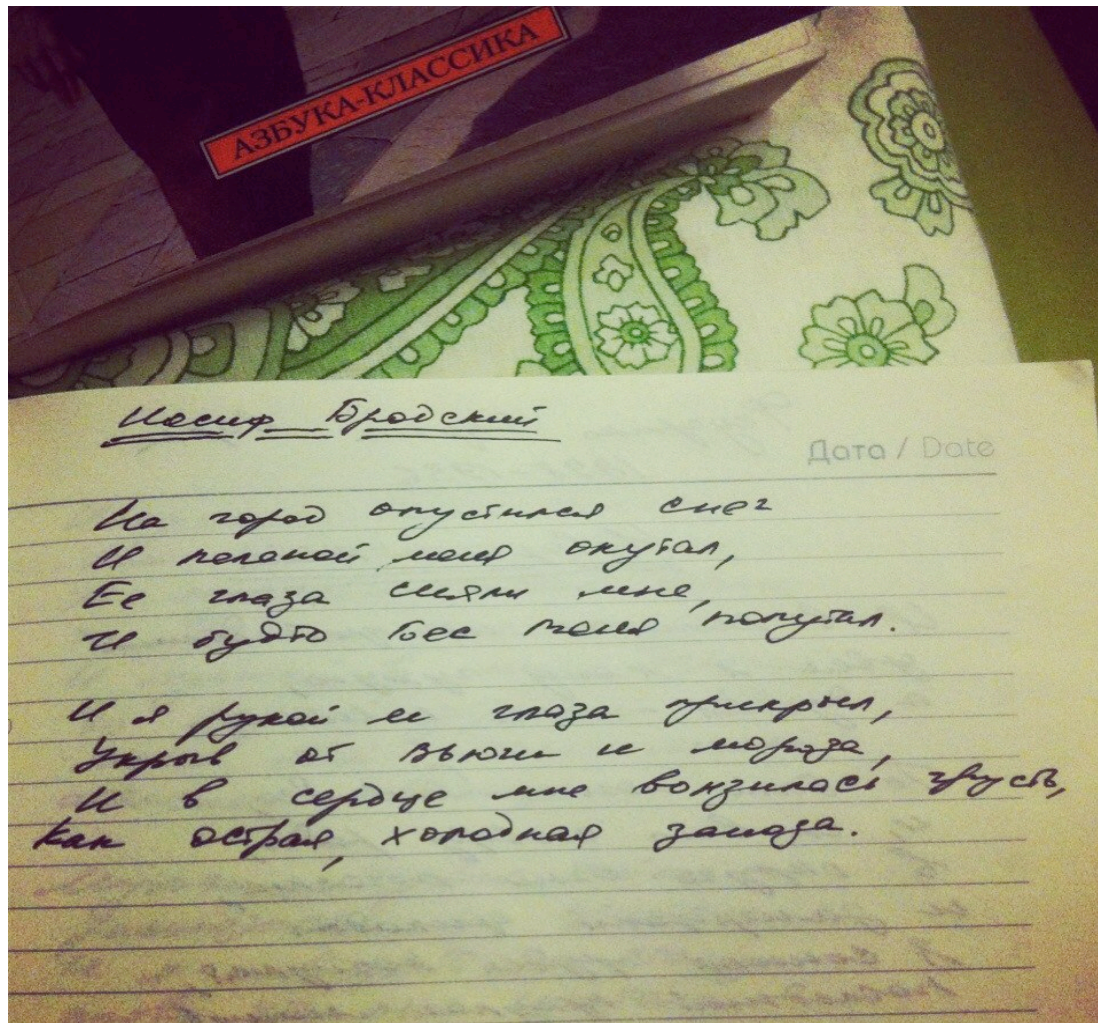 АЗБУКА-КЛАССИКА
Иосиф Бродский
Дата / Date
На город опустился снег
И пеленой меня окутал,
Ее глаза сияли мне,
И будто бес меня попутал.
И я рукой ей глаза прикрыл,
Укрыв от вьюги и мороза,
И в сердце мне вонзилась грусть,
Как острая, холодная заноза.